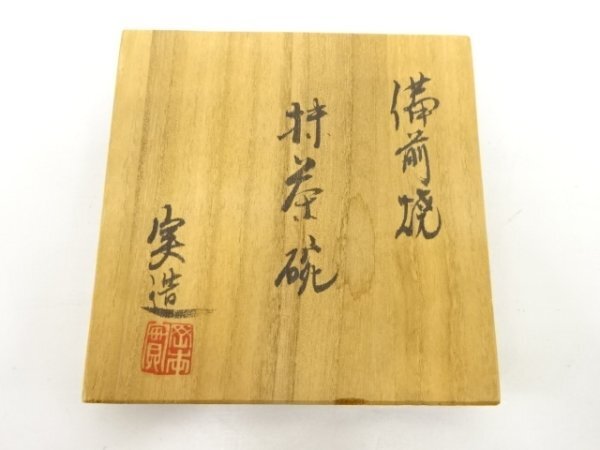 備前焼
抹茶碗
実造